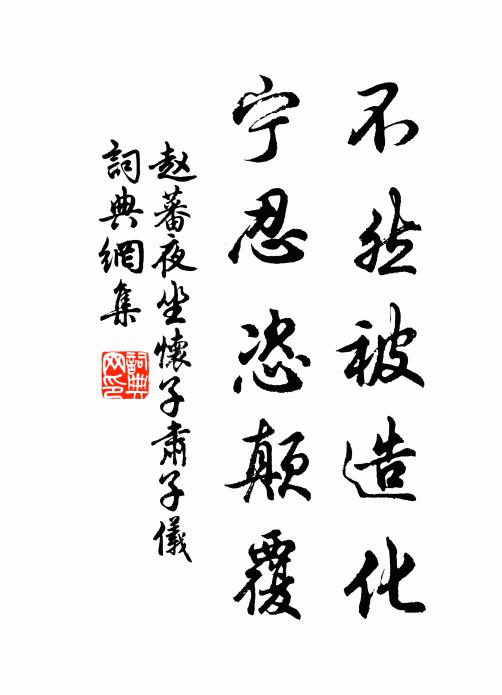 不然被造化
宁忍恣颠覆
赵蕃夜坐懷子肅子儀
詞典網集
詞典网印